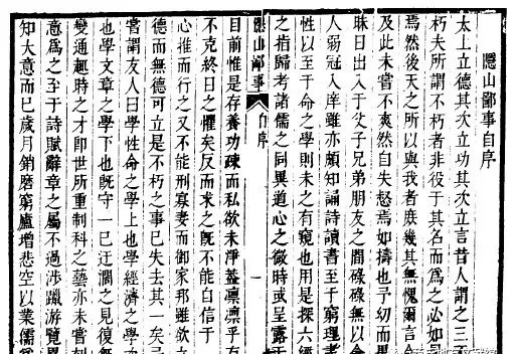 隱山鄙事自序
太上立德其次立功其次立言昔人謂之三不
朽夫所謂不朽者非役于其名而為之必如是
焉然後天之所以與我者庶幾其無愧爾言
及此未嘗不爽然自失惄焉如擣也予幼而
昧日出入于父子兄弟朋友之間碌碌無以
人弱冠入庠雖亦頗知誦詩讀書至于窮理
性以至于命之學則未之有窺也用是探六經
之指歸考諸儒之同異道心之微時或呈露于
隱山鄙事 自序 一
目前惟是存養功疎而私欲未淨蓋凜凜乎有
不克終日之懼矣反而求之既不能白信于
心推而行之又不能刑寡妻而御家邦雖欲立
德而無德可立是不朽之事已失去其一矣
嘗謂友人曰學性命之學上也學經濟之學
也學文章之學下也既守一已迂濶之見復無
變通趨時之才卽世所重制科之藝亦未嘗
意為之至于詩賦辭章之屬不過涉躐游覽
知大意而已歲月銷磨窮廬增悲空以業儒